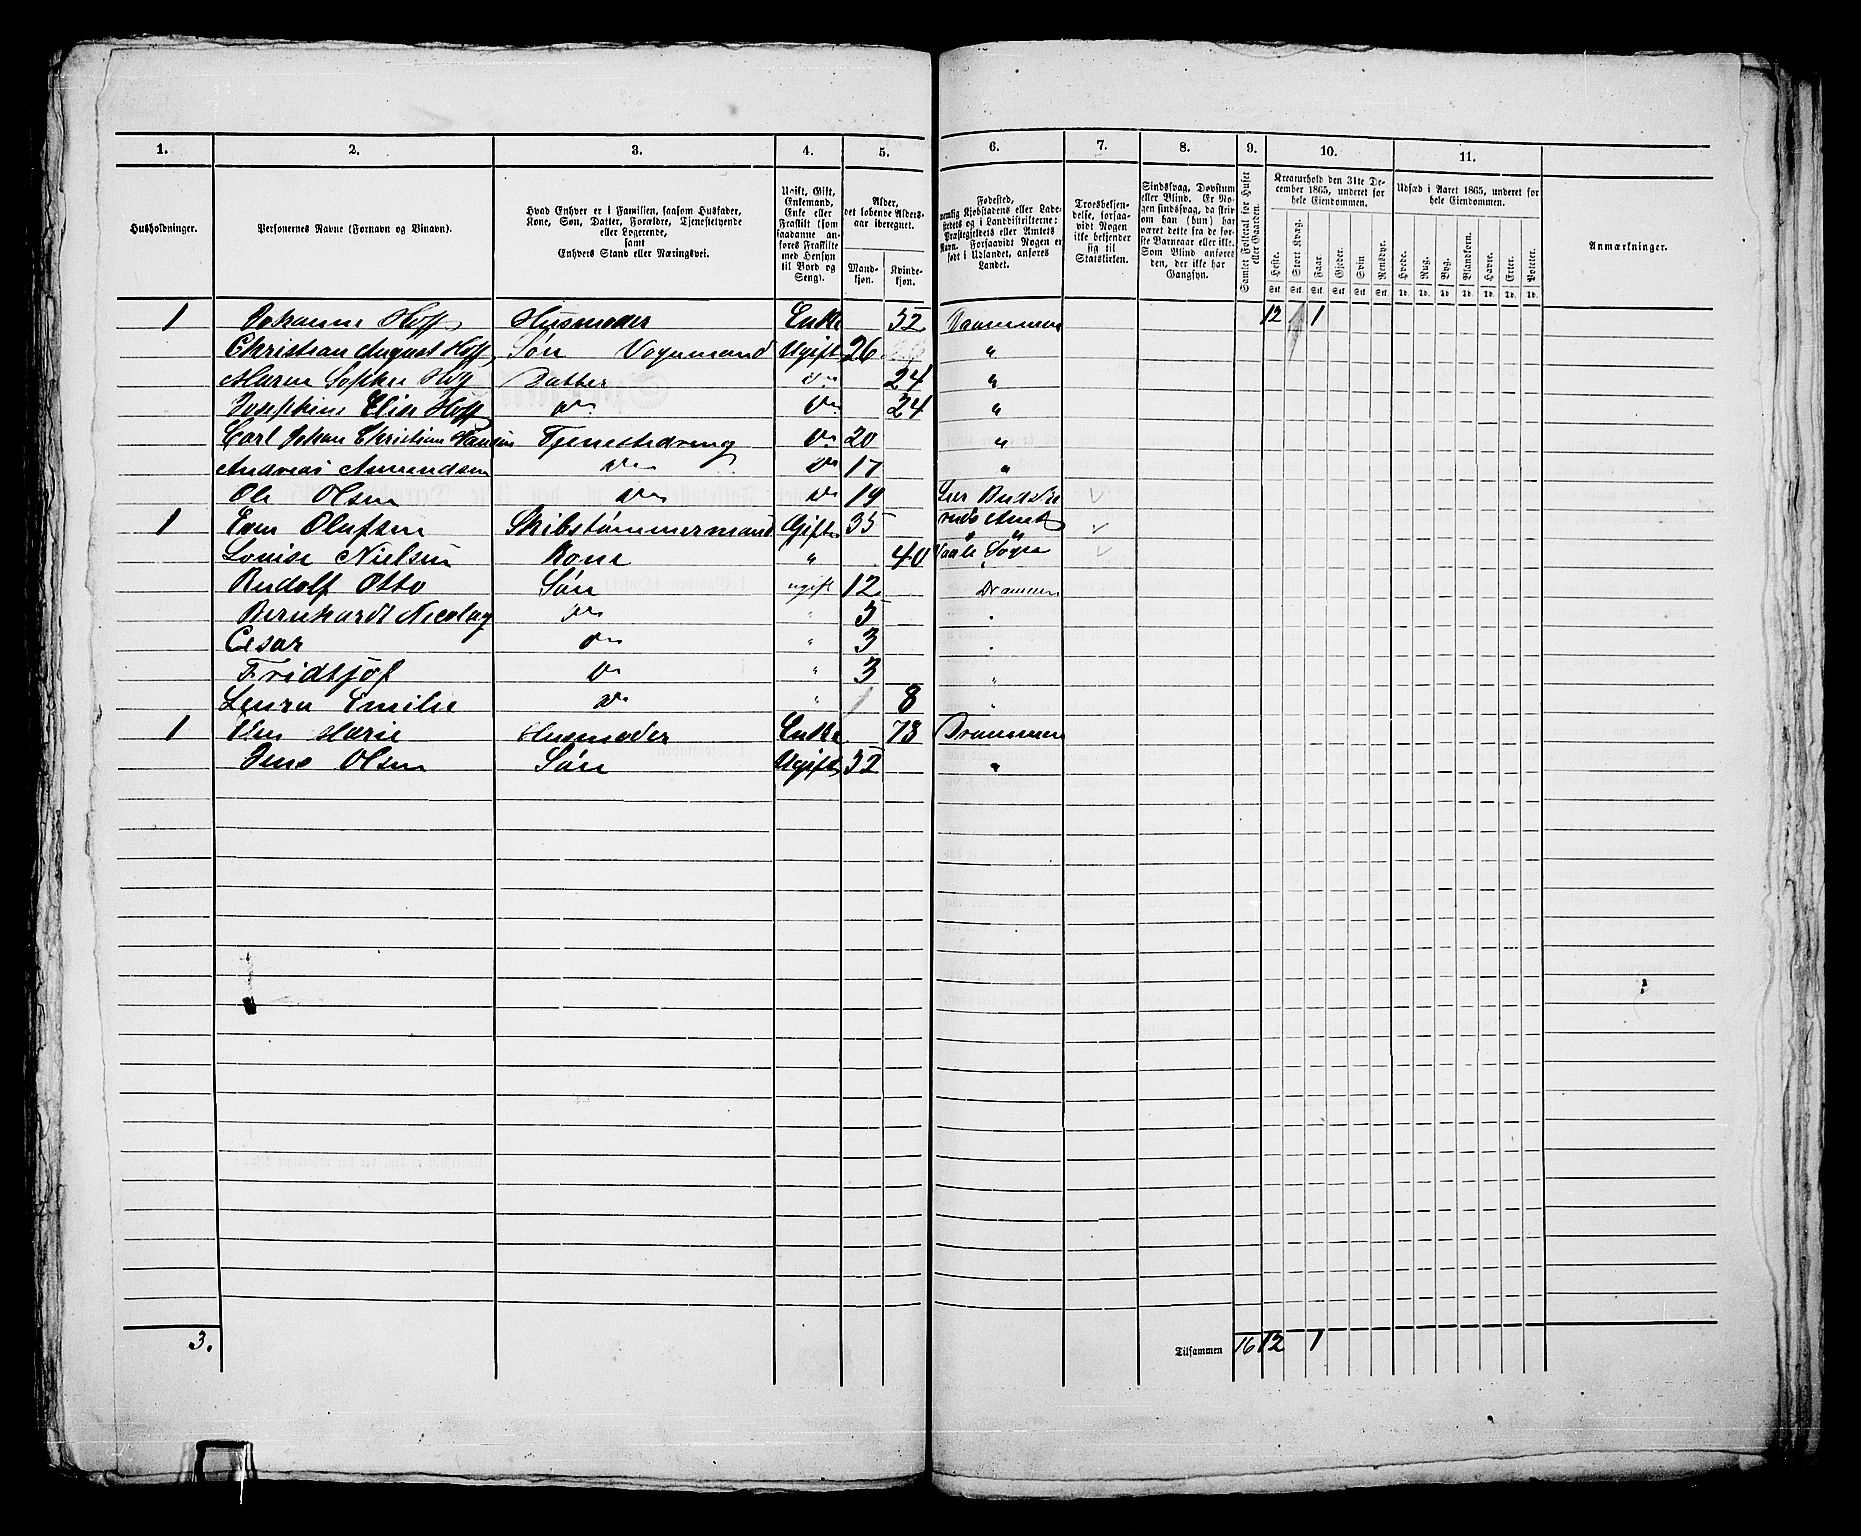 1. 2. 3. 4. 5. 6. 7. 8. 9. 10. 11.
Husholdninger.
Personernes Navne (Fornavn og Binavn).
Hvad Enhver er i Familien, saasom Husfader,
Kone, Søn, Datter, Forældre, Tjenestetyende
eller Logerende,
samt
Enhvers Stand eller Næringsvei.
Ugift, Gift,
Enkemand,
Enke eller
Fraskilt (som
saadanne an-
føres Fraskilte
med Hensyn
til Bord og
Seng).
Alder,
det løbende Alders-
aar iberegnet.
Mand-
kjøn.
Kvinde-
kjøn.
Fødested,
nemlig Kjøbstadens eller Lade-
stedets og i Landdistrikterne:
Præstegjeldets eller Amtets
Navn. Forsaavidt Nogen er
født i Udlandet, anføres
Landet.
Troesbekjen-
delse, forsaa-
vidt Nogen
ikke bekjender
sig til
Statskirken.
Sindssvag, Døvstum
eller Blind. Er No-
gen sindssvag, da skriv
om han (hun) har
været dette fra de før-
ste Barneaar eller ikke.
Som Blind anføres
den, der ikke har
Gangsyn.
Samlet Folketal for Huset
eller Gaarden.
Kreaturhold den 31te De-
cember 1865, underet for
hele Eiendommen.
Heste. Stort Kvæg. Faar. Gjeder. Svin. Rensdyr.
Stk. Stk. Stk. Stk. Stk. Stk.
Udsæd i Aaret 1865, underet for
hele Eiendommen.
Hvede. Rug. Byg. Blandkorn. Havre. Erter. Poteter.
Td. Td. Td. Td. Td. Td. Td.
Anmærkninger.
1 Johanne Hoff Husmoder Enke 52 Drammen 12 1
Christian August Hoff Søn Vognmand Ugift 26 "
Maren Sophie Hoff Datter do 24 "
Josephine Elise Hoff do do 24 "
Carl Johan Christian Hansen Tjenestedreng do 20 "
Andreas Amundsen do do 17 "
Ole Olsen do do 19 Lier Buske
1 Even Olufsen Skibstømmermand Gift 35 ruds Amt
Louise Nielsen Kone " 40 Vaale Sogn
Rudolf Otto Søn ugift 12 Drammen
Bernhardt Nicolay do " 5 "
Cesar do " 3 "
Fridtjof do " 3 "
Laura Emilie do " 8 "
1 Marie Husmoder Enke 78 Drammen
Jens Olsen Søn Ugift 52 "
3. Tilsammen 16 12 1